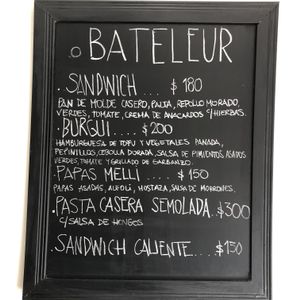 BATELEUR
. SANDWICH . . . $ 180
PAN DE MOLDE CASERO, PALTA, REPOLLO MORADO
VERDES, TOMATE, CREMA DE ANACARDOS C/HIERBAS.
. BURGUI . . . . $ 200
HAMBURGUESA DE TOFU Y VEGETALES PANADA,
PEPINILLOS, CEBOLLA DORADA, SALSA DE PIMIENTOS ASADOS
VERDES, TOMATE Y GRILLADO DE GARBANZO.
. PAPAS MELLI . . . . $ 150
PAPAS ASADAS, ALIOLI, MOSTAZA, SALSA DE MORRONES.
. PASTA CASERA SEMOLADA. $300
C/SALSA DE HONGOS
. SANDWICH CALIENTE . . . . $150